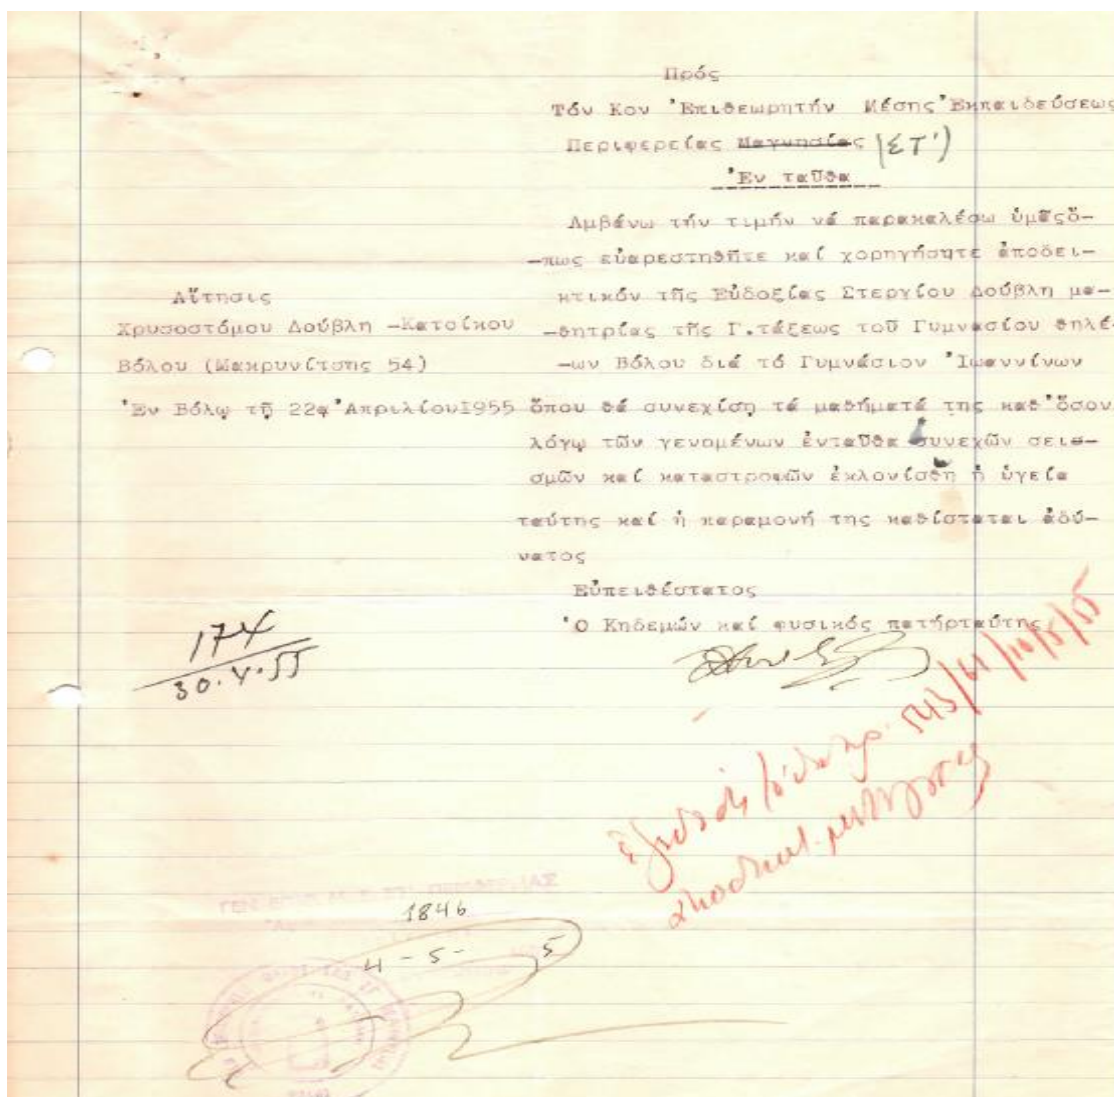 Πρός
Τόν Κον Ἐπιθεωρητήν Μέσης Ἐκπαιδεύσεως
Περιφερείας Μαγνησίας (ΣΤ')
Ἐν ταῦθα
Αμβάνω τήν τιμήν νά παρακαλέσω ὑμᾶςὅ-
-πως εὐαρεστηθῆτε καί χορηγήσητε ἀποδει-
κτικόν τῆς Εὐδοξίας Στεργίου Δούβλη μα-
-θητρίας τῆς Γ.τάξεως τοῦ Γυμνασίου θηλέ-
-ων Βόλου διά τό Γυμνάσιον Ἰωαννίνων
ὅπου θά συνεχίσῃ τά μαθήματά της καθ'ὅσον
λόγῳ τῶν γενομένων ἐνταῦθα συνεχῶν σεισ-
σμῶν καί καταστροφῶν ἐκλονίσθη ἡ ὑγεία
ταύτης καί ἡ παραμονή της καθίσταται ἀδύ-
νατος
Εὐπειθέστατος
Ὁ Κηδεμών καί φυσικός πατήρταύτης
Αἴτησις
Χρυσοστόμου Δούβλη -Κατοίκου
Βόλου (Μακρυνίτσης 54)
Ἐν Βόλῳ τῇ 22ᾳ ἈπριλίουI955
174
30.4.55
543/61/10/5/55
1846
4-5-55